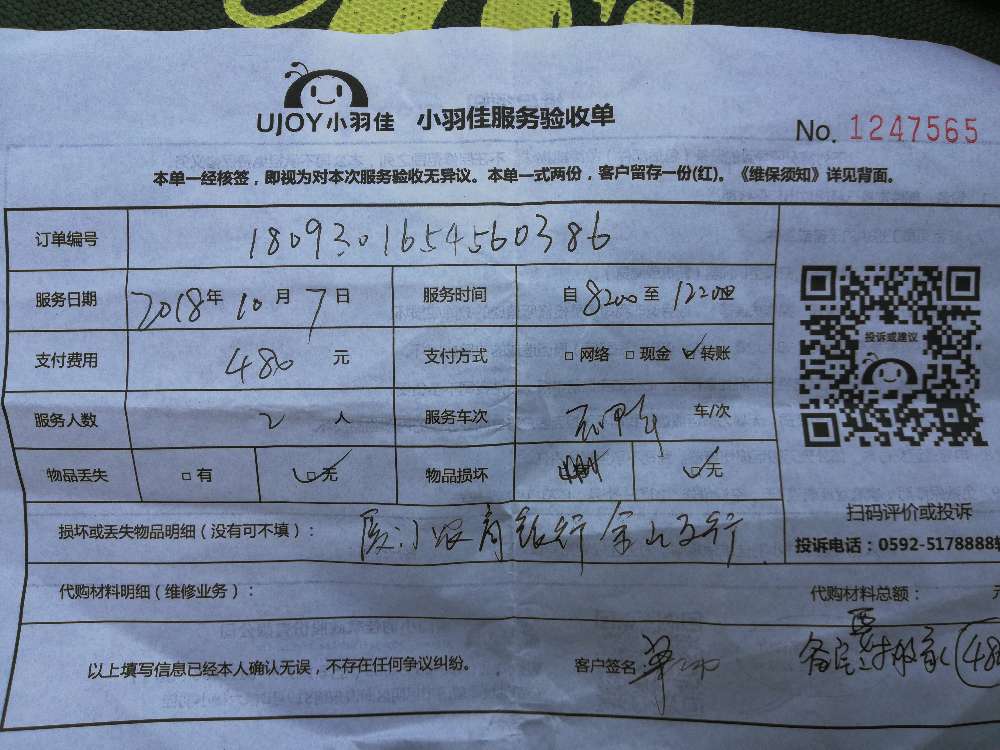 UJOY小羽佳 小羽佳服务验收单
No. 1247565
本单一经核签，即视为对本次服务验收无异议。本单一式两份，客户留存一份(红)。《维保须知》详见背面。
订单编号 1809301654560386
服务日期 2018年10月7日 服务时间 自8200至1220
支付费用 480元 支付方式 □网络 □现金 ☑转账
服务人数 2人 服务车次 车/次
物品丢失 □有 ☑无 物品损坏 ☑无
投诉或建议
扫码评价或投诉
投诉电话：0592-5178888转
损坏或丢失物品明细（没有可不填）： 厦门农商银行金山支行
代购材料明细（维修业务）： 代购材料总额： 元
以上填写信息已经本人确认无误，不存在任何争议纠纷。 客户签名 单 备 票 48